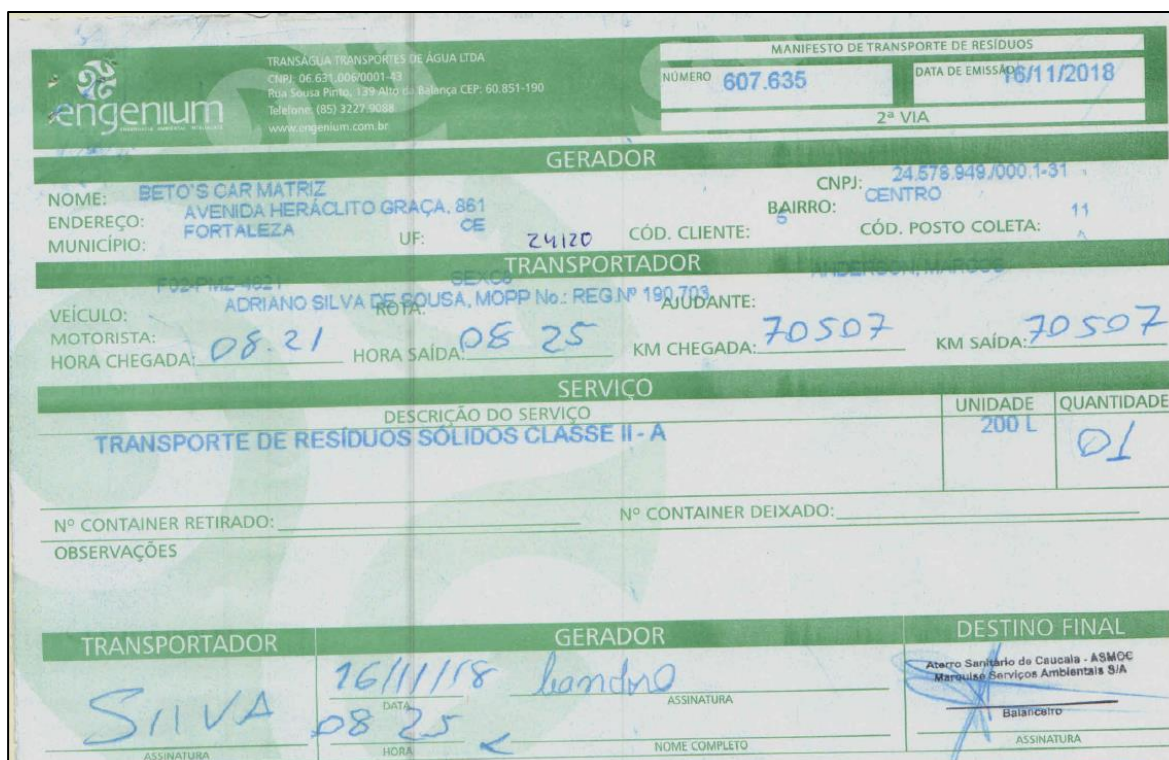 engenium
TRANSÁGUA TRANSPORTES DE ÁGUA LTDA
CNPJ: 06.631.006/0001-43
Rua Sousa Pinto, 139 Alto da Balança CEP: 60.851-190
Telefone: (85) 3227.9088
www.engenium.com.br
MANIFESTO DE TRANSPORTE DE RESÍDUOS
NÚMERO 607.635 DATA DE EMISSÃO 16/11/2018
2ª VIA
GERADOR
NOME: BETO'S CAR MATRIZ CNPJ: 24.578.949./000.1-31
ENDEREÇO: AVENIDA HERÁCLITO GRAÇA, 861 BAIRRO: CENTRO
MUNICÍPIO: FORTALEZA UF: CE 24120 CÓD. CLIENTE: 5 CÓD. POSTO COLETA: 11
TRANSPORTADOR
ANDERSON, MARCOS
VEÍCULO: ADRIANO SILVA DE SOUSA, MOPP No.: REG.Nº 190.703 ROTA: AJUDANTE:
MOTORISTA:
HORA CHEGADA: 08.21 HORA SAÍDA: 08 25 KM CHEGADA: 70507 KM SAÍDA: 70507
SERVIÇO
DESCRIÇÃO DO SERVIÇO UNIDADE QUANTIDADE
TRANSPORTE DE RESÍDUOS SÓLIDOS CLASSE II - A 200 L 01
Nº CONTAINER RETIRADO: Nº CONTAINER DEIXADO:
OBSERVAÇÕES
TRANSPORTADOR GERADOR DESTINO FINAL
SILVA 16/11/18 Leandro
DATA ASSINATURA
Aterro Sanitário de Caucaia - ASMOC
Marquise Serviços Ambientais S/A
Balanceiro
08 25
ASSINATURA HORA NOME COMPLETO ASSINATURA